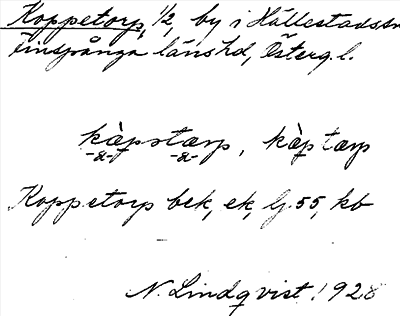 Koppetorp, 1/2, by i Hällestads sn
Finspånga länshd, Österg. l.
kàpstærp, kàptærp
-a- -a-
Koppetorp bek, ek, lj 55, kb
N. Lindqvist 1928